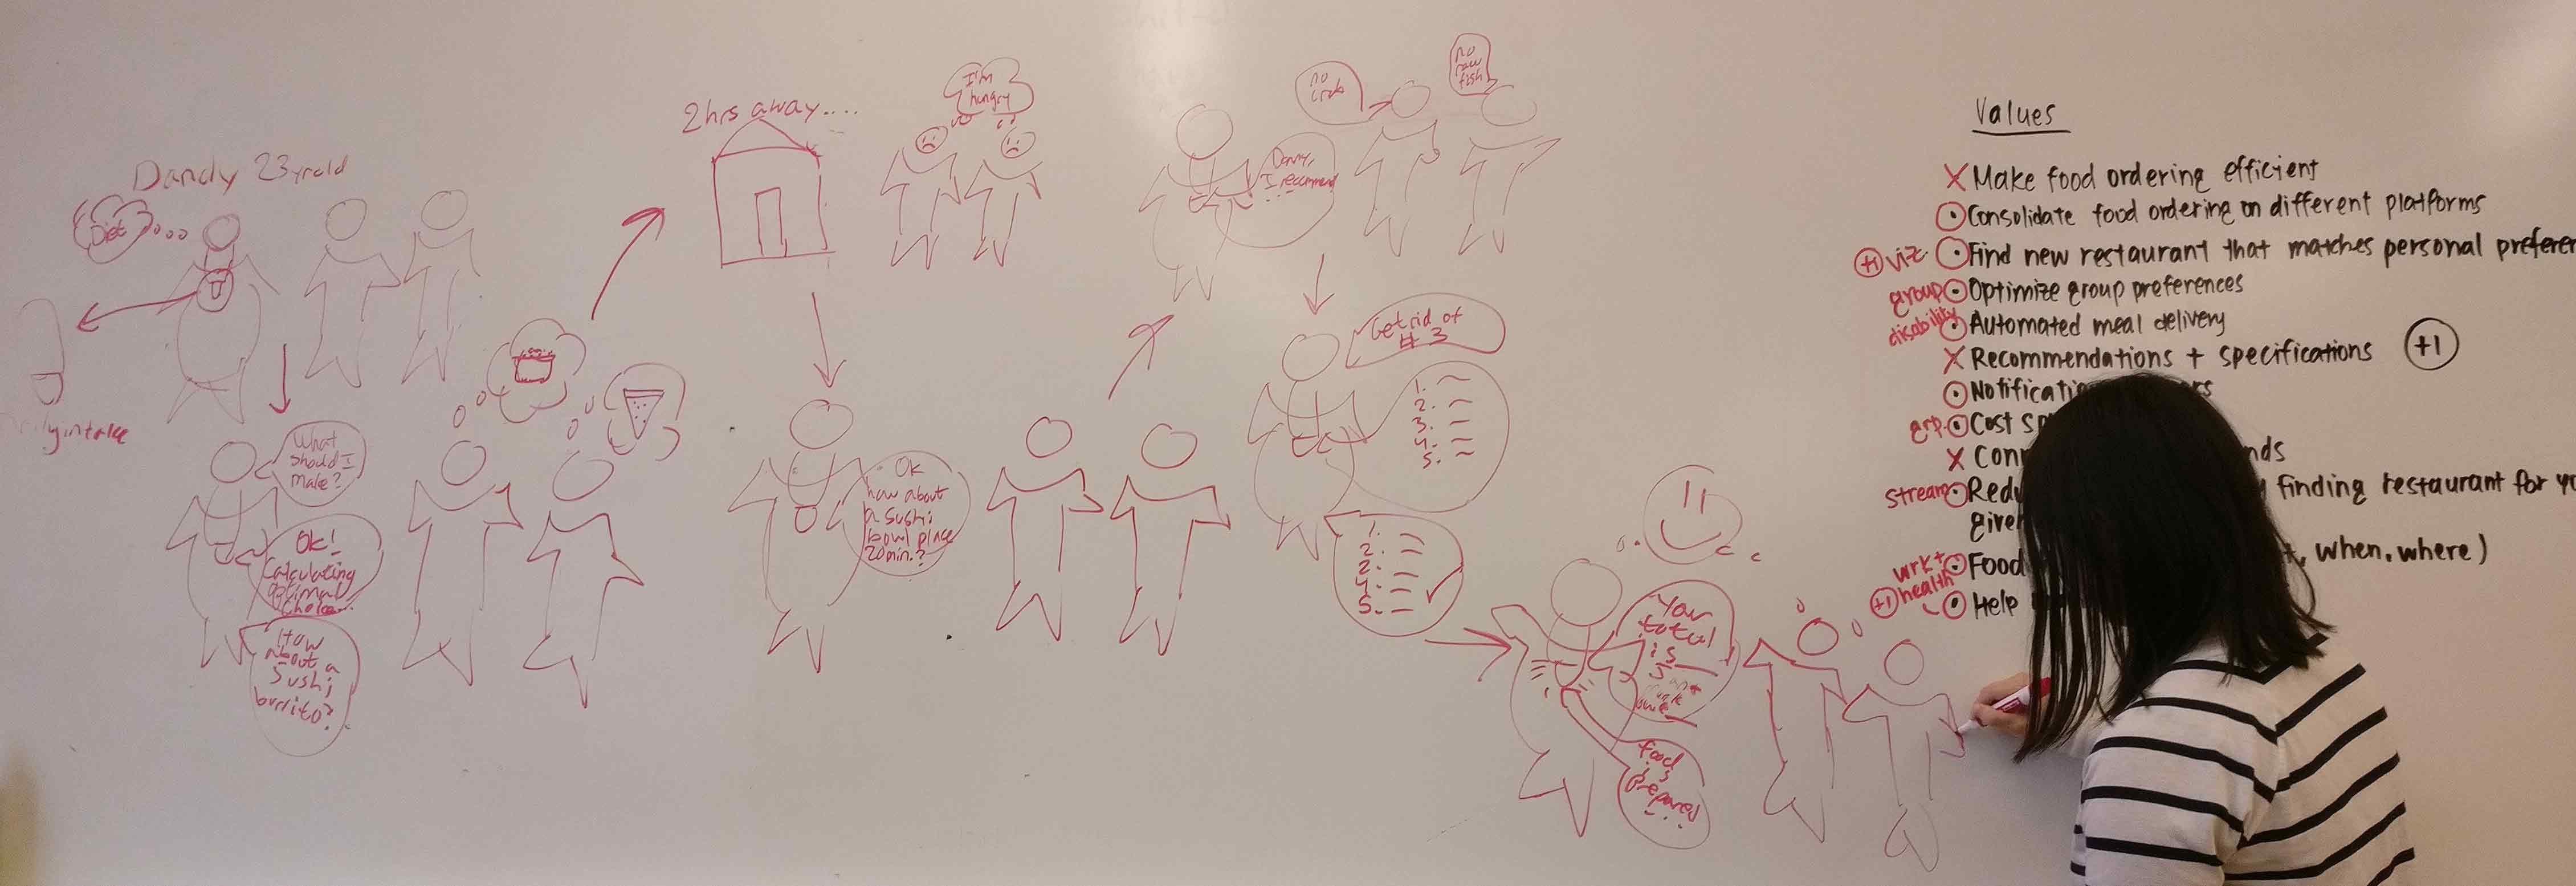 Dandy 23yrold
Diet
intake
What
should I
make?
Ok!
Calculating
optimal
choice...
How
about a
Sushi
burrito?
2hrs away....
I'm
hungry
Ok
how about
a sushi
bowl place
20min.?
no
crab
no
raw
fish
I recommend
...
Get rid of
# 3
1.
2.
3.
4.
5.
1.
2.
2.
4.
5.
Your
total
is
food
is
prepared
...
Values
X Make food ordering efficient
Consolidate food ordering on different platforms
+1 viz. Find new restaurant that matches personal prefer
group Optimize group preferences
disability Automated meal delivery
X Recommendations + specifications +1
Notificati
grp. Cost
X Con nds
stream Redu finding restaurant for yo
given
wrk + Food , when, where)
+1 health Help